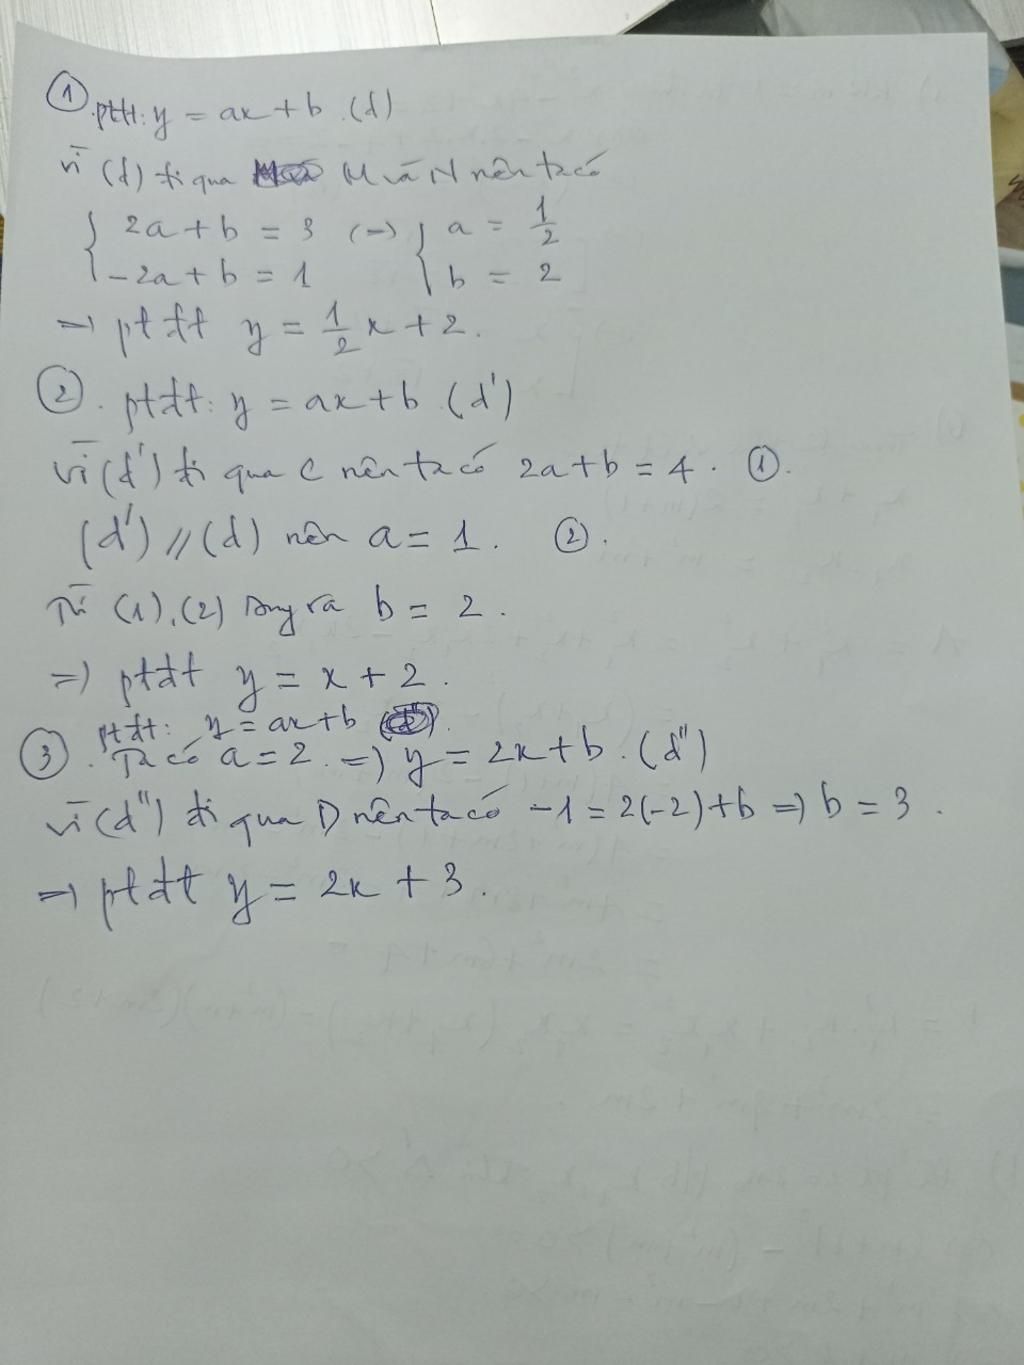 ① ptđt: y = ax + b . (d)
vì (d) đi qua M và N nên ta có
{ 2a + b = 3 (=) { a = 1/2
{ -2a + b = 1 { b = 2
=) pt đt y = 1/2 x + 2.
② . ptđt: y = ax + b (d')
vì (d') đi qua C nên ta có 2a + b = 4 . ①.
(d') // (d) nên a = 1. ②.
Từ (1), (2) suy ra b = 2 .
=) ptđt y = x + 2 .
ptđt: y = ax + b
③ . Ta có a = 2 . =) y = 2x + b . (d")
vì (d") đi qua D nên ta có -1 = 2(-2) + b =) b = 3 .
=) ptđt y = 2x + 3 .